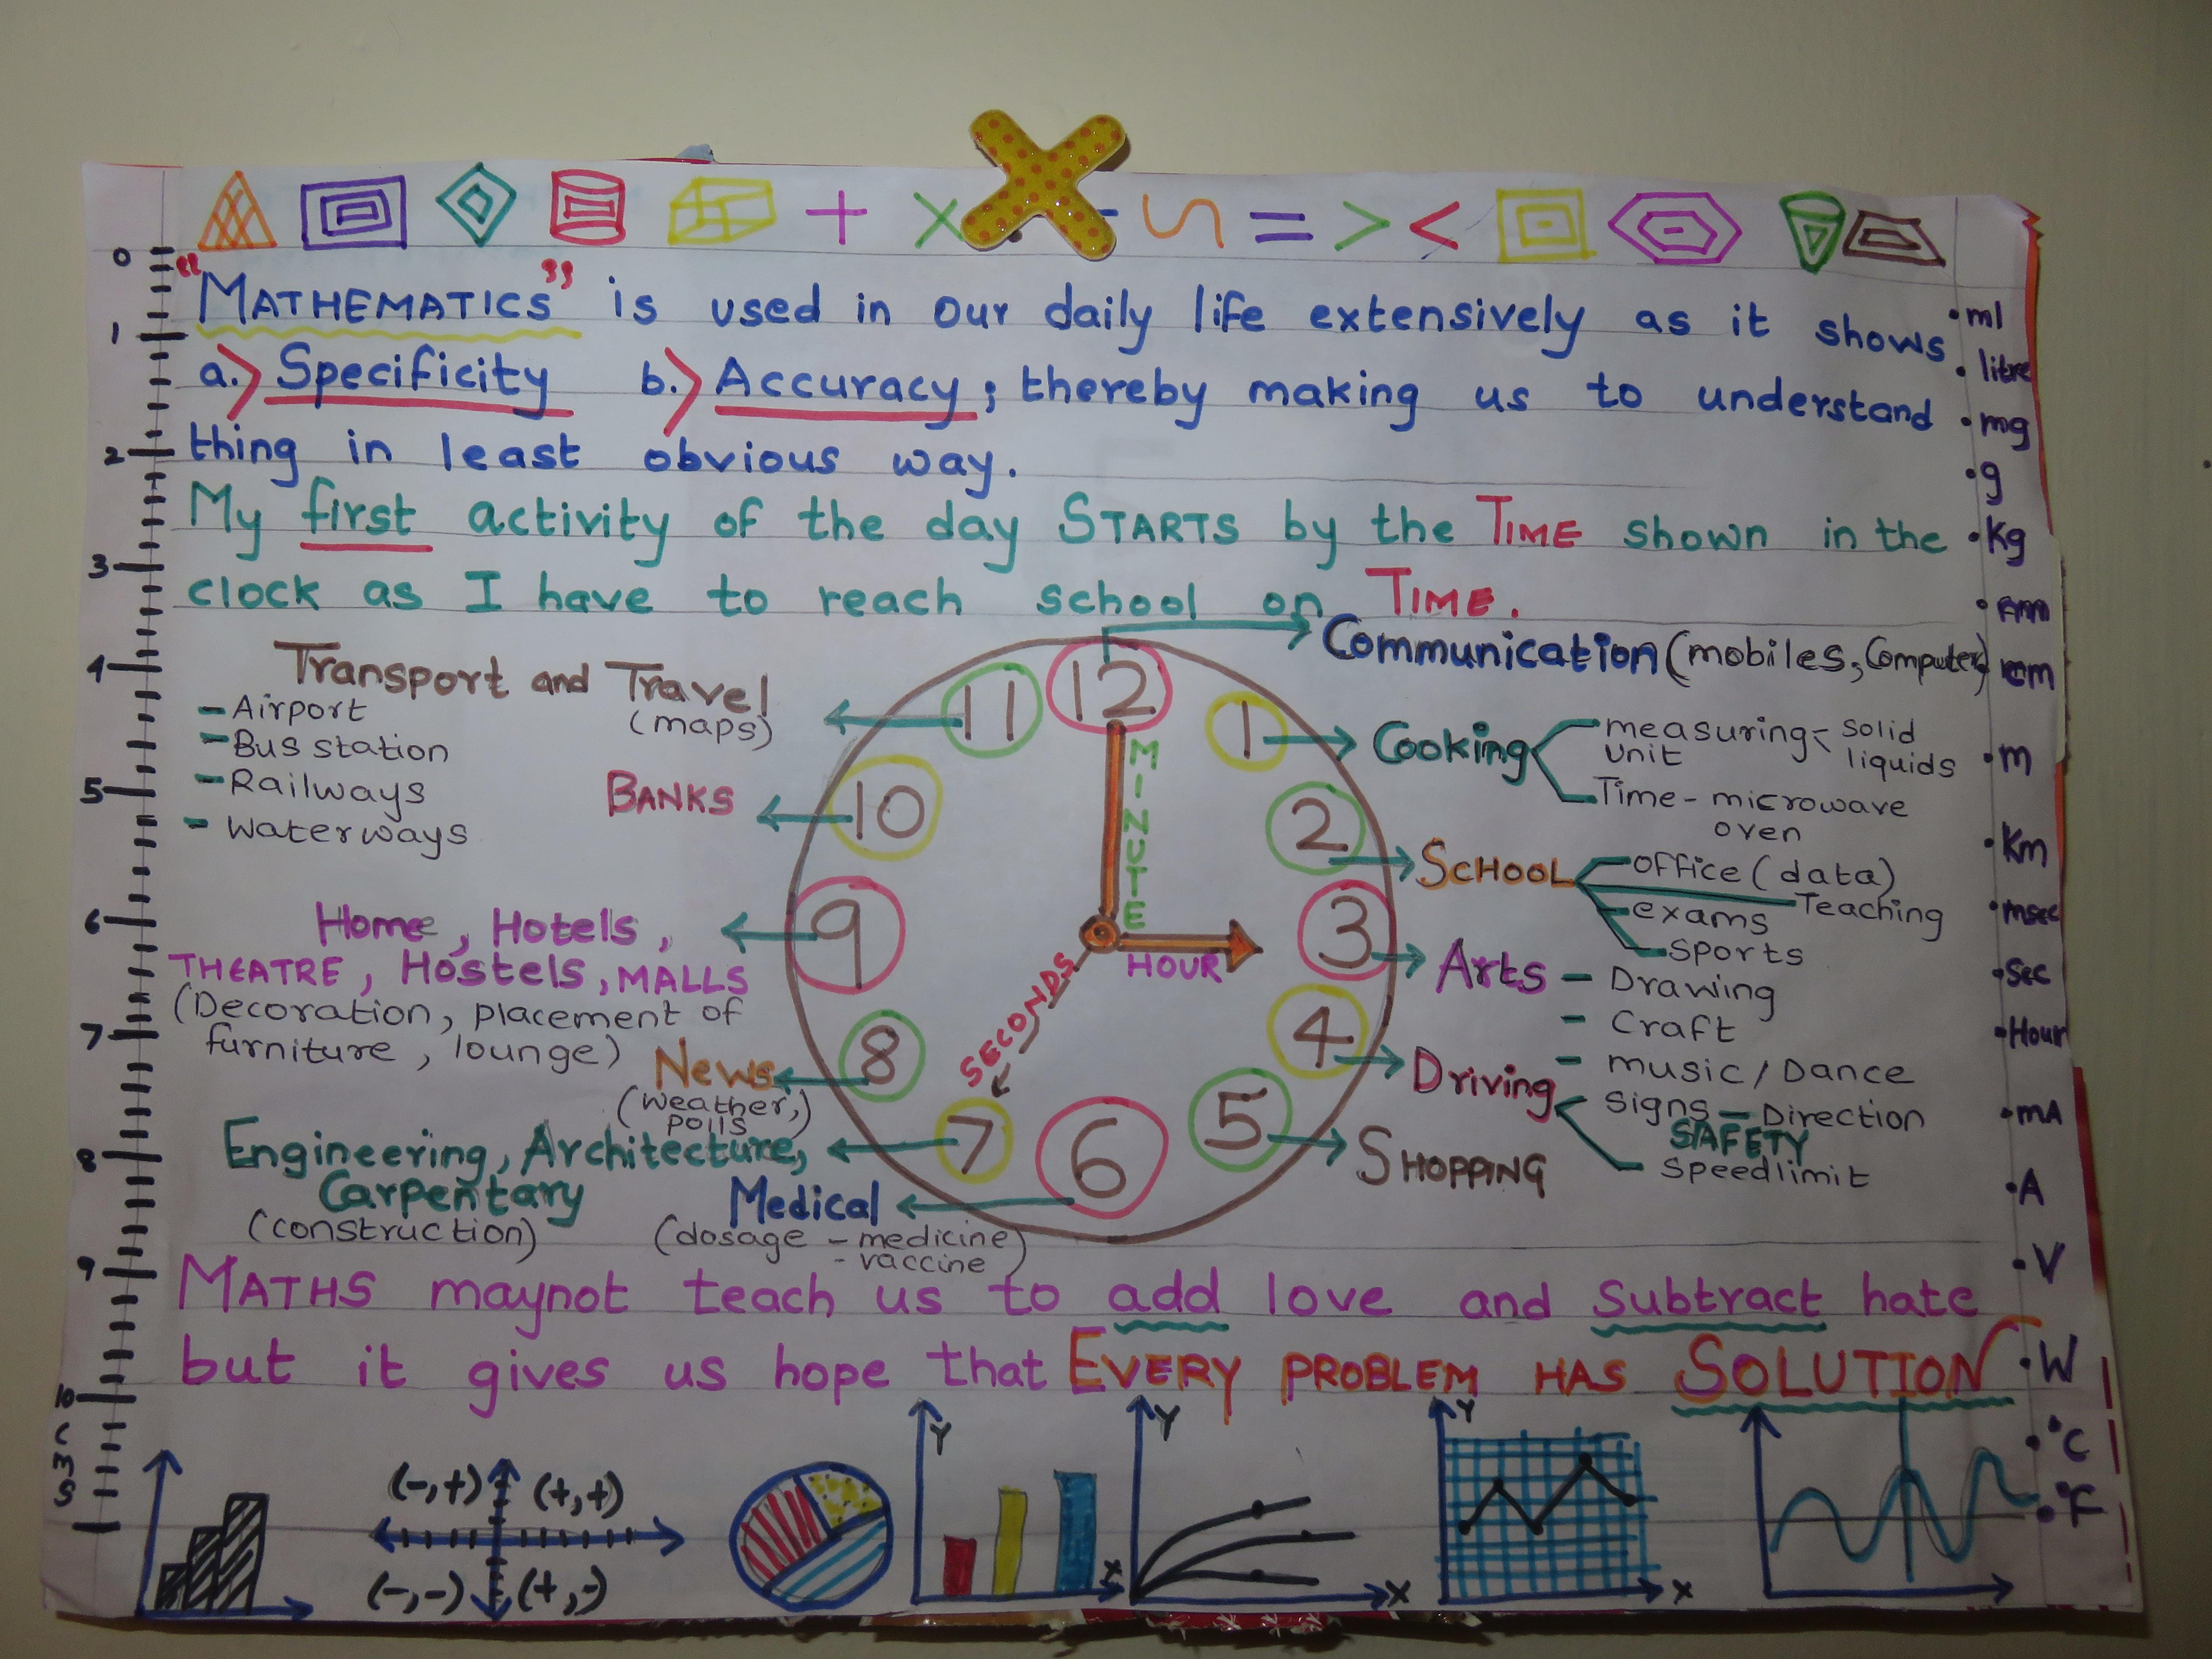 + × - = > <
"MATHEMATICS" is used in our daily life extensively as it shows
a.> Specificity b.> Accuracy; thereby making us to understand
thing in least obvious way.
My first activity of the day STARTS by the TIME shown in the
clock as I have to reach school on TIME.
12
Communication (mobiles, Computer)
1
Cooking
measuring unit
solid
liquids
Time - microwave
oven
2
SCHOOL
office (data)
Teaching
exams
sports
3
Arts - Drawing
- Craft
- music / Dance
4
Driving
Signs - Direction
SAFETY
Speedlimit
5
SHOPPING
6
Medical
(dosage - medicine
- vaccine)
7
Engineering, Architecture,
Carpentary
(construction)
8
News
(weather,
polls)
9
Home, Hotels,
THEATRE, Hostels, MALLS
(Decoration, placement of
furniture, lounge)
10
BANKS
11
Transport and Travel
(maps)
- Airport
- Bus station
- Railways
- Waterways
MINUTE
HOUR
SECONDS
MATHS maynot teach us to add love and subtract hate
but it gives us hope that EVERY PROBLEM HAS SOLUTION
0
1
2
3
4
5
6
7
8
9
10
CMS
• ml
• litre
• mg
• g
• Kg
• cm
• m
• Km
• msec
• Sec
• Hour
• mA
• A
• V
• W
• °C
• °F
(-,+) (+,+)
(-,-) (+,-)
Y
X
Y
X
Y
X